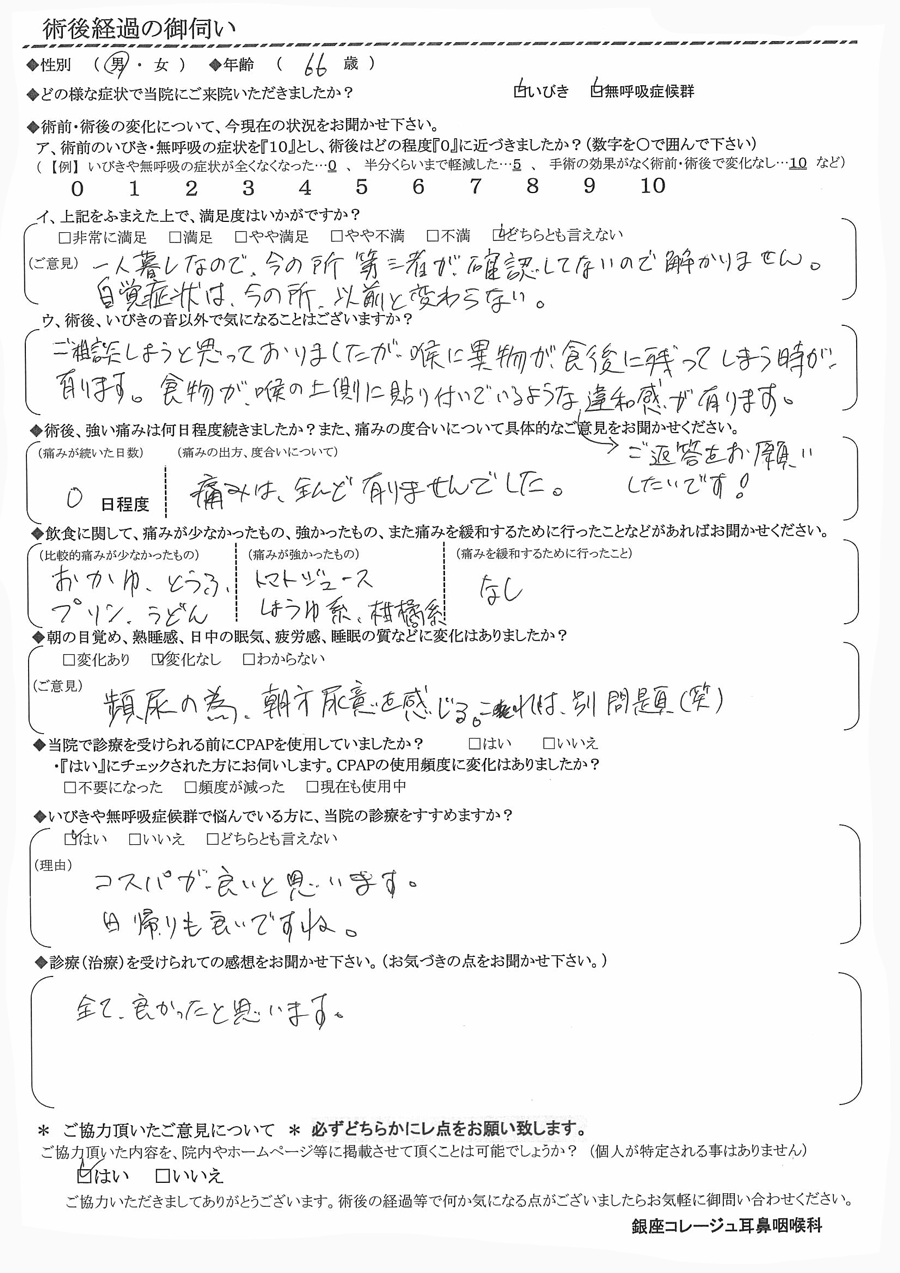 術後経過の御伺い
◆性別 （ 男 ・ 女 ） ◆年齢 （ 66 歳 ）
◆どの様な症状で当院にご来院いただきましたか？ ☑いびき ☑無呼吸症候群
◆術前・術後の変化について、今現在の状況をお聞かせ下さい。
ア、術前のいびき・無呼吸の症状を『10』とし、術後はどの程度『0』に近づきましたか？（数字を〇で囲んで下さい）
（ 【例】 いびきや無呼吸の症状が全くなくなった…0 、 半分くらいまで軽減した…5 、 手術の効果がなく術前・術後で変化なし…10 など）
0 1 2 3 4 5 6 7 8 9 10
イ、上記をふまえた上で、満足度はいかがですか？
□非常に満足 □満足 □やや満足 □やや不満 □不満 ☑どちらとも言えない
（ご意見） 一人暮しなので、今の所 第三者が、確認してないので 解かりません。
自覚症状は、今の所、以前と変わらない。
ウ、術後、いびきの音以外で気になることはございますか？
ご相談しようと思っておりましたが、喉に異物が、食後に残ってしまう時が、
有ります。食物が、喉の上側に貼り付いでいるような違和感が有ります。
◆術後、強い痛みは何日程度続きましたか？また、痛みの度合いについて具体的なご意見をお聞かせください。
→ ご返答をお願い
したいです！
（痛みが続いた日数） （痛みの出方、度合いについて）
0 日程度 痛みは、全んど有りませんでした。
◆飲食に関して、痛みが少なかったもの、強かったもの、また痛みを緩和するために行ったことなどがあればお聞かせください。
（比較的痛みが少なかったもの） （痛みが強かったもの） （痛みを緩和するために行ったこと）
おかゆ、とうふ、 トマトジュース なし
プリン、うどん しょうゆ系、柑橘系
◆朝の目覚め、熟睡感、日中の眠気、疲労感、睡眠の質などに変化はありましたか？
□変化あり ☑変化なし □わからない
（ご意見） 頻尿の為、朝方尿意を感じる。これは、別問題（笑）
◆当院で診療を受けられる前にCPAPを使用していましたか？ □はい □いいえ
・『はい』にチェックされた方にお伺いします。CPAPの使用頻度に変化はありましたか？
□不要になった □頻度が減った □現在も使用中
◆いびきや無呼吸症候群で悩んでいる方に、当院の診療をすすめますか？
☑はい □いいえ □どちらとも言えない
（理由） コスパが良いと思います。
日帰りも良いですね。
◆診療（治療）を受けられての感想をお聞かせ下さい。（お気づきの点をお聞かせ下さい。）
全て、良かったと思います。
＊ ご協力頂いたご意見について ＊ 必ずどちらかにレ点をお願い致します。
ご協力頂いた内容を、院内やホームページ等に掲載させて頂くことは可能でしょうか？ （個人が特定される事はありません）
☑はい □いいえ
ご協力いただきましてありがとうございます。術後の経過等で何か気になる点がございましたらお気軽に御問い合わせください。
銀座コレージュ耳鼻咽喉科